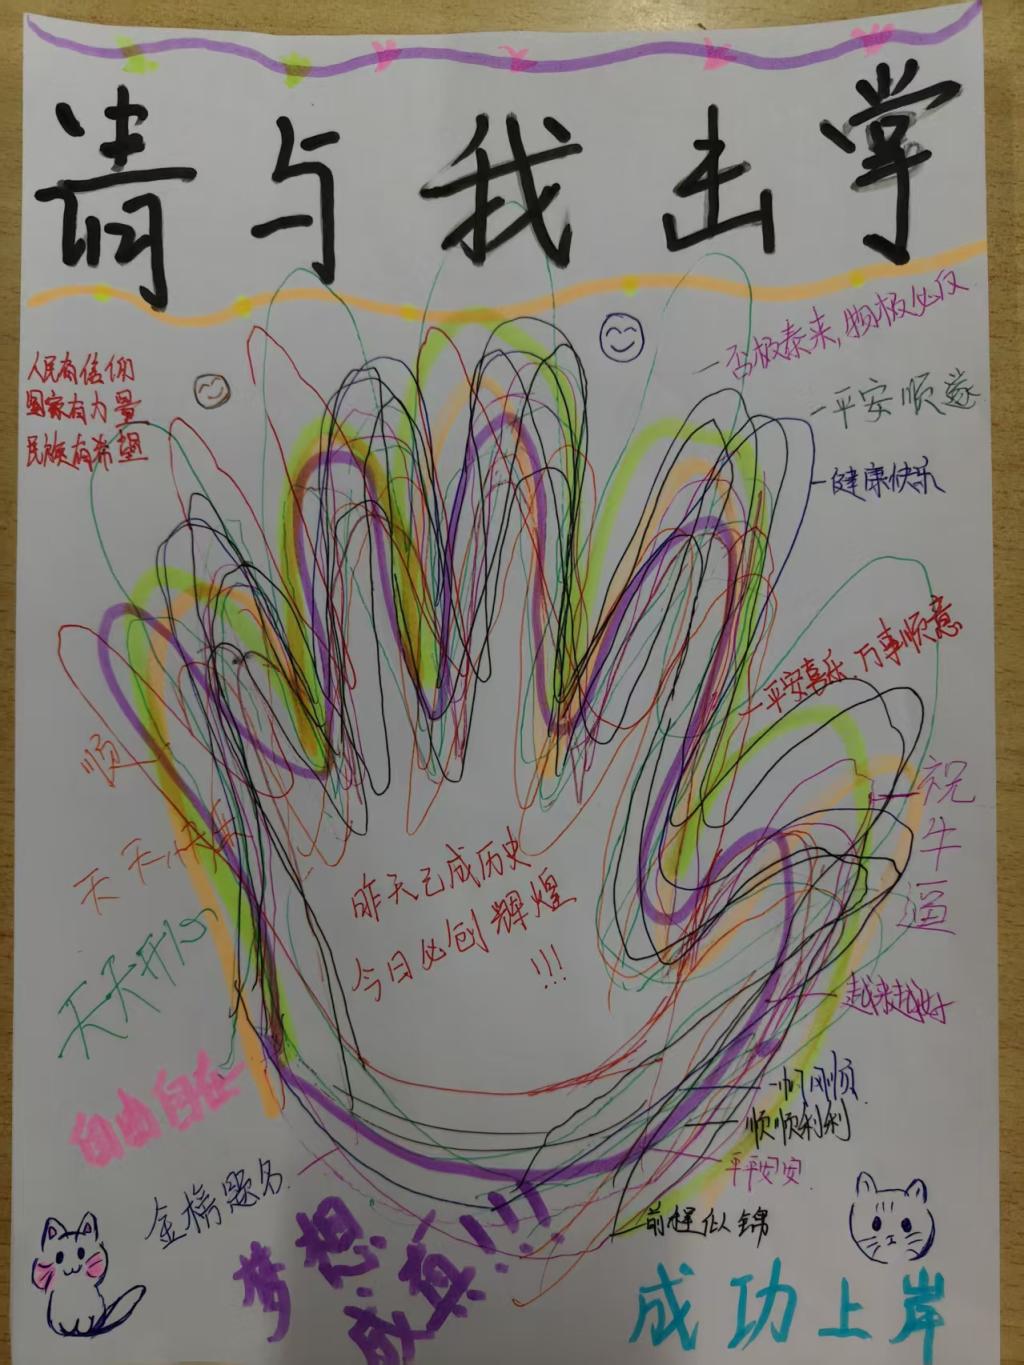 请与我击掌
人民有信仰
国家有力量
民族有希望
一否极泰来,物极必反
一平安顺遂
健康快乐
一平安喜乐、万事顺意
顺
祝
牛
逼
天天快乐
昨天已成历史
今日必创辉煌
!!!
天天开心
越来越好
自由自在
一帆风顺
顺顺利利
平平安安
金榜题名
前程似锦
梦想
成真!!!
成功上岸